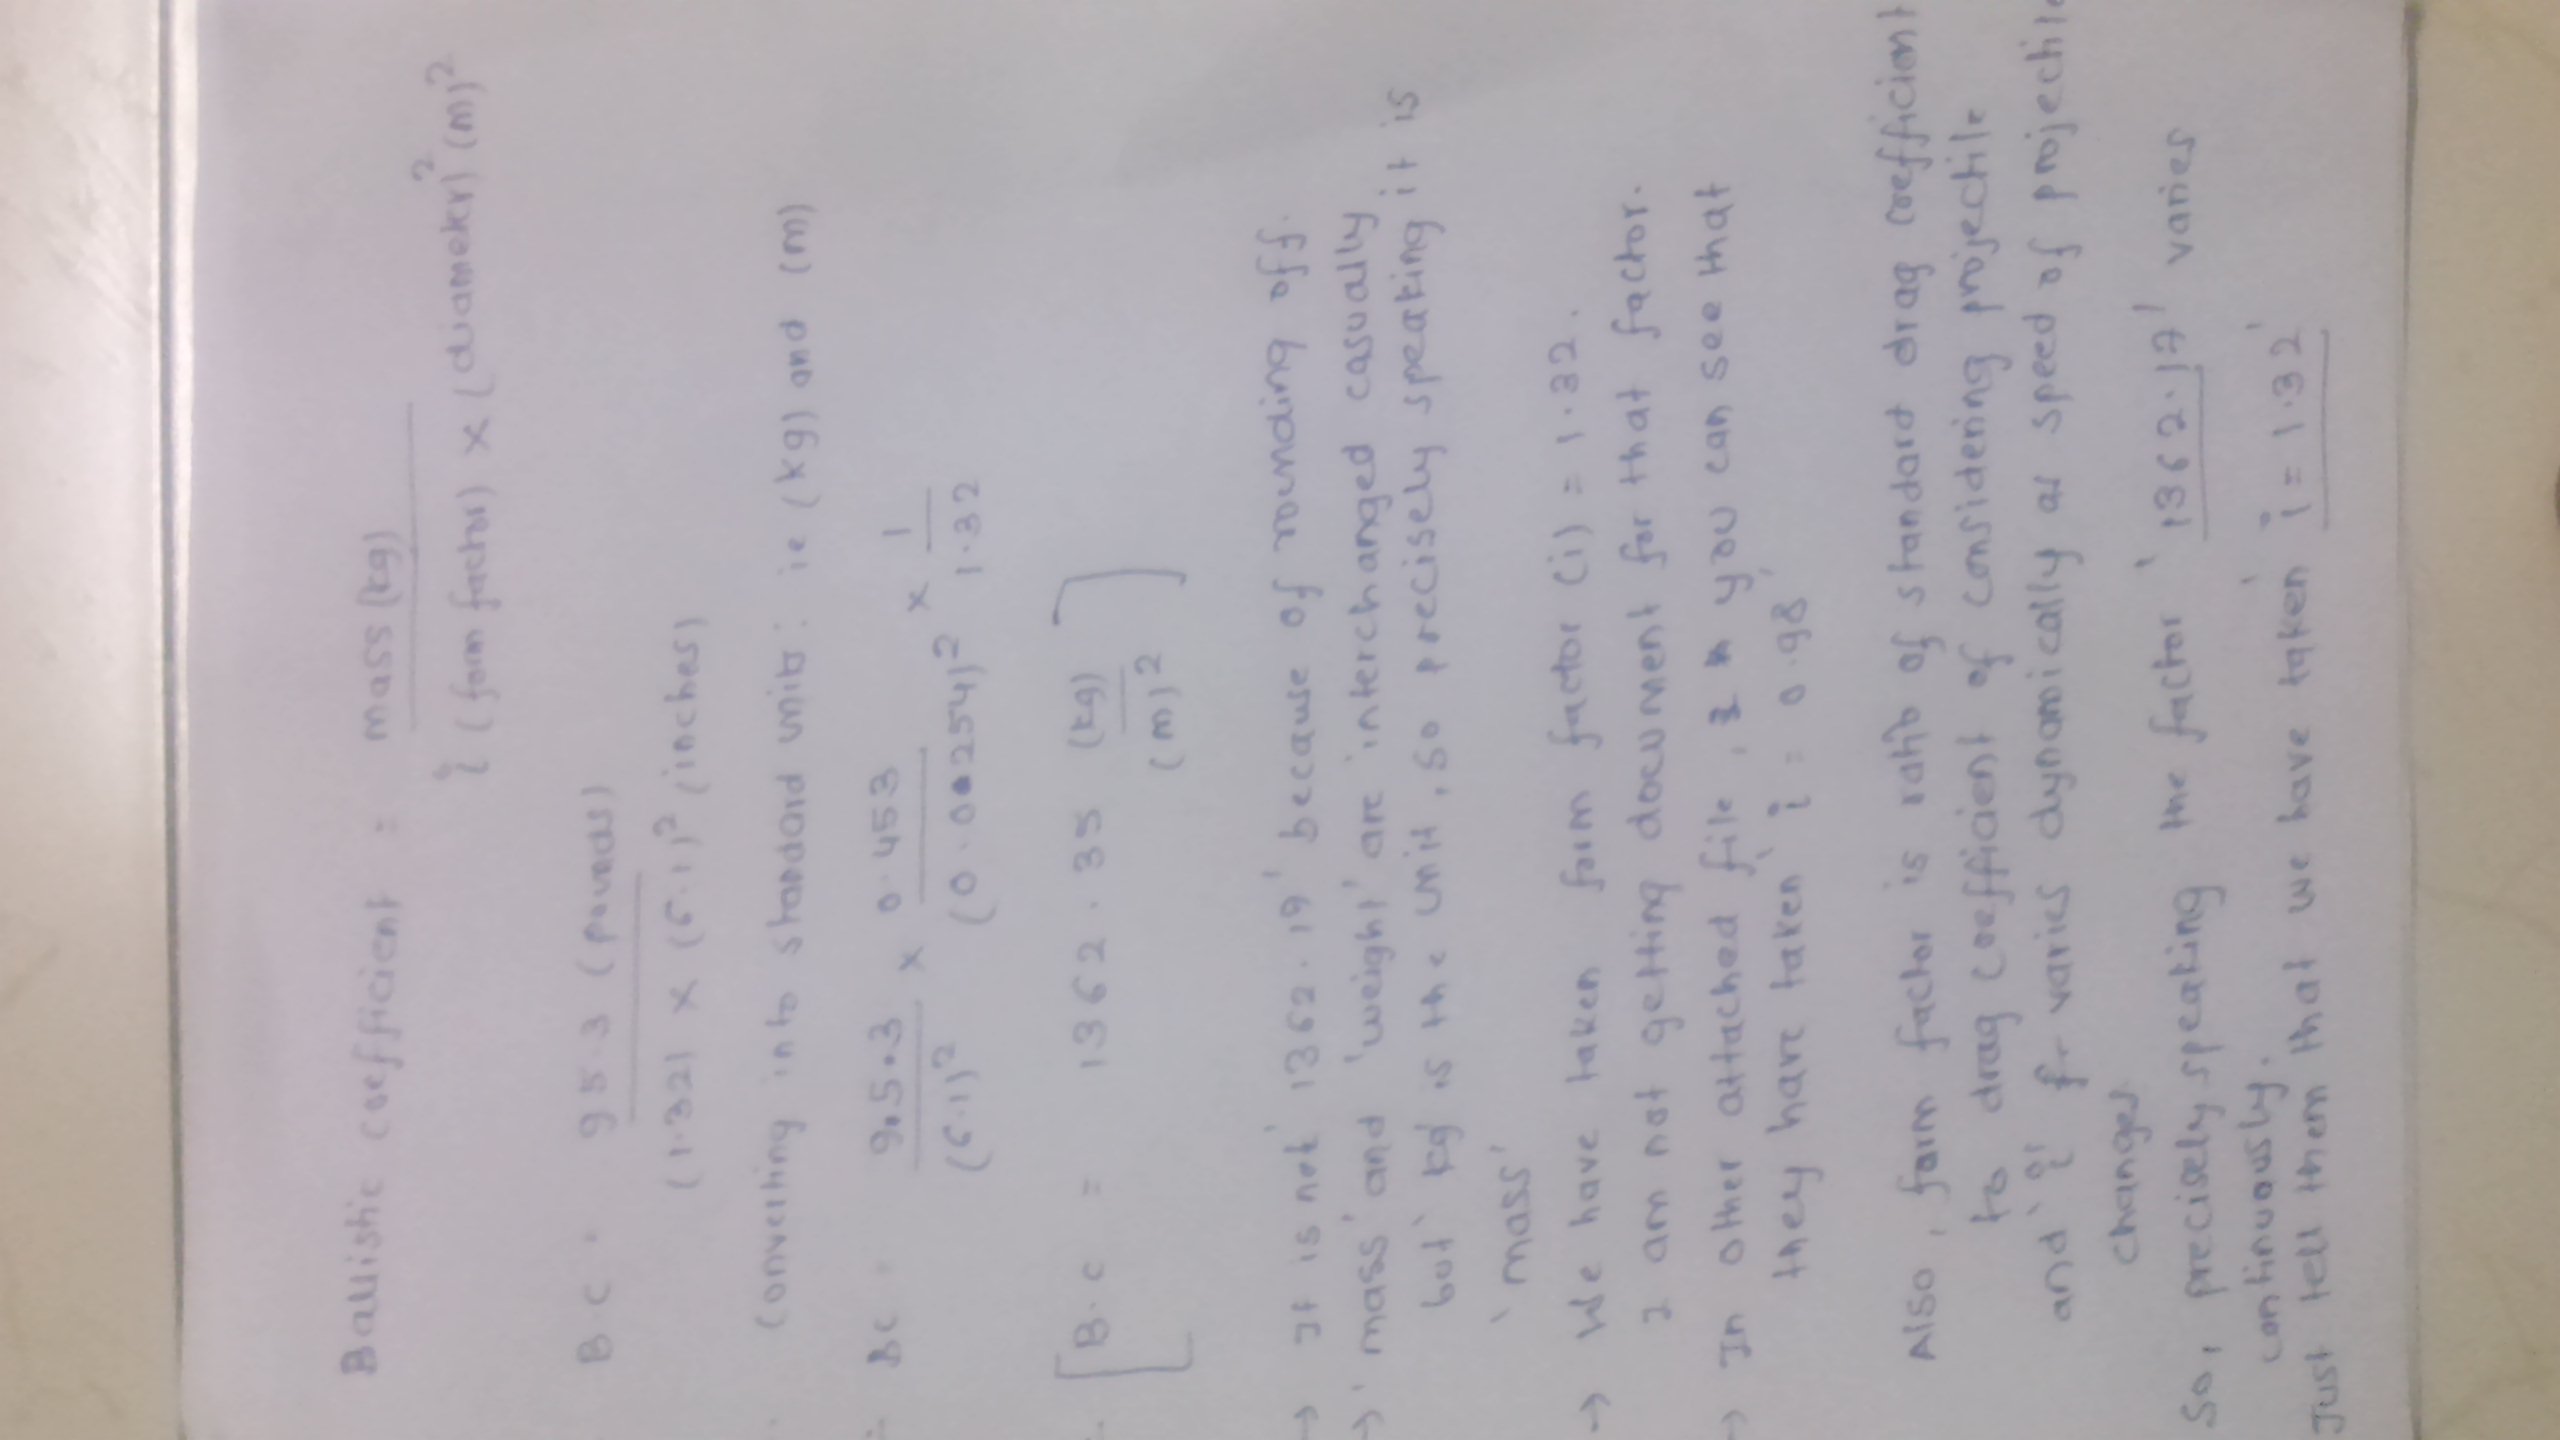 Ballistic coefficient = mass (kg)
i (form factor) × (diameter)² (m)²
B.C = 95.3 (pounds)
(1.32) × (6.1)² (inches)
Converting into standard units: ie (kg) and (m)
∴ BC = 95.3 / (6.1)² × 0.453 / (0.00254)² × 1 / 1.32
∴ [B.C = 1362.35 (kg) / (m)²]
→ It is not '1362.19' because of rounding off.
→ 'mass' and 'weight' are interchanged casually
but 'kg' is the unit, so precisely speaking it is
'mass'
→ We have taken form factor (i) = 1.32.
I am not getting document for that factor.
→ In other attached file, you can see that
they have taken 'i = 0.98'
Also, form factor is ratio of standard drag coefficient
to drag coefficient of considering projectile
and 'i' varies dynamically as speed of projectile
changes
So, precisely speaking the factor '1362.17' varies
continuously.
Just tell them that we have taken 'i = 1.32'